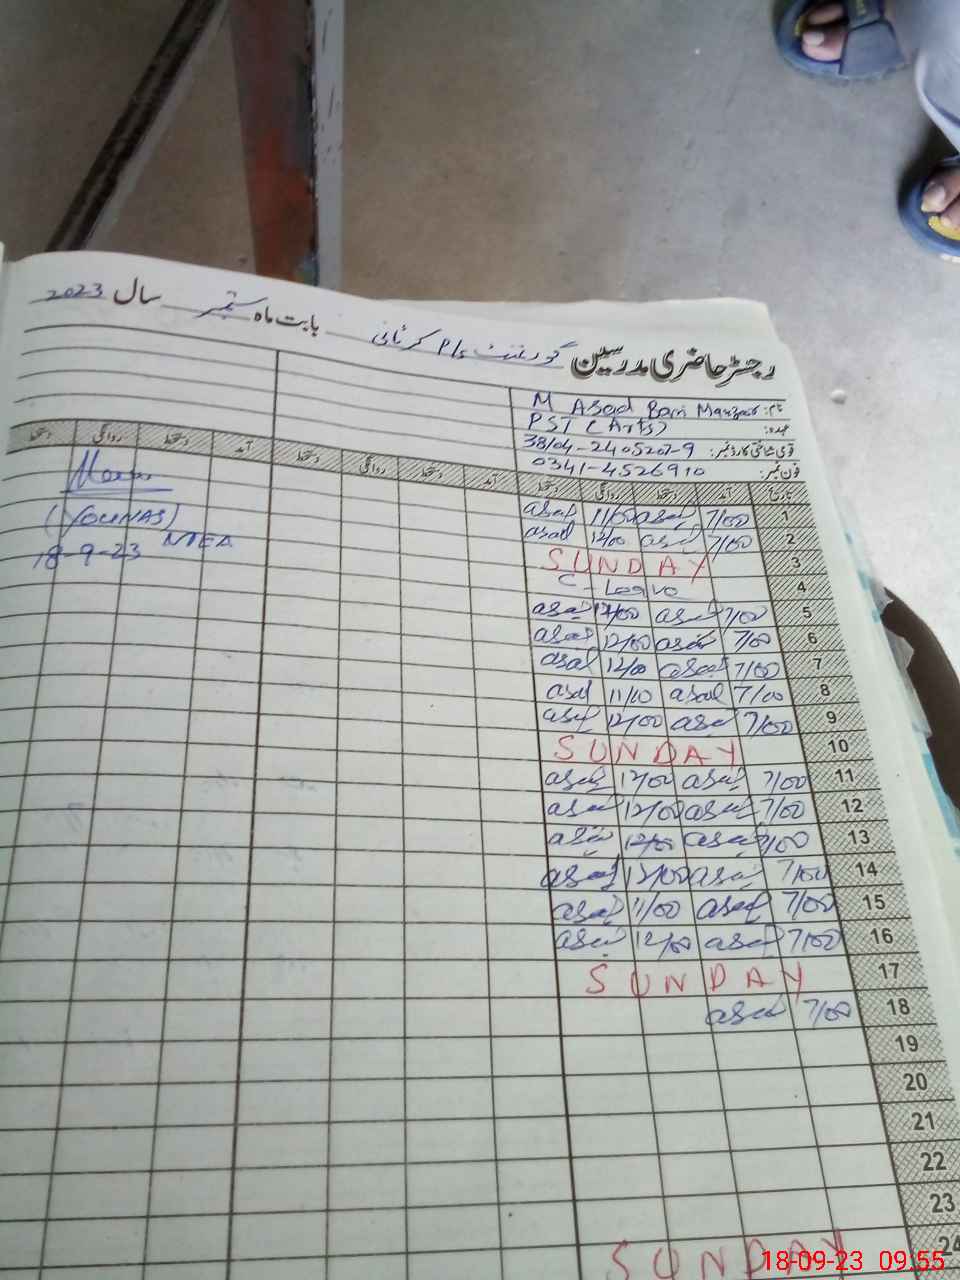 رجسٹر حاضری مدرسین گورنمنٹ P/s بابت ماہ ستمبر سال 2023
نام: M Asad Bari Manzoor
عہدہ: PST (Arts)
قومی شناختی کارڈ نمبر: 38104-2405207-9
فون نمبر: 0341-4526910
تاریخ آمد دستخط روانگی دستخط آمد دستخط روانگی دستخط آمد دستخط روانگی دستخط
1 7/00 asad 11/00 asad
2 7/00 asad 12/00 asad
3 SUNDAY
4 C-Leave
5 7/00 asad 12/00 asad
6 7/00 asad 12/00 asad
7 7/00 asad 12/00 asad
8 7/00 asad 11/10 asad
9 7/00 asad 12/00 asad
10 SUNDAY
11 7/00 asad 12/00 asad
12 7/00 asad 12/00 asad
13 7/00 asad 12/00 asad
14 7/00 asad 12/00 asad
15 7/00 asad 11/00 asad
16 7/00 asad 12/00 asad
17 SUNDAY
18 7/00 asad
19
20
21
22
23
24 SUNDAY
(YOUNAS)
MEA
18-9-23
18-09-23 09:55